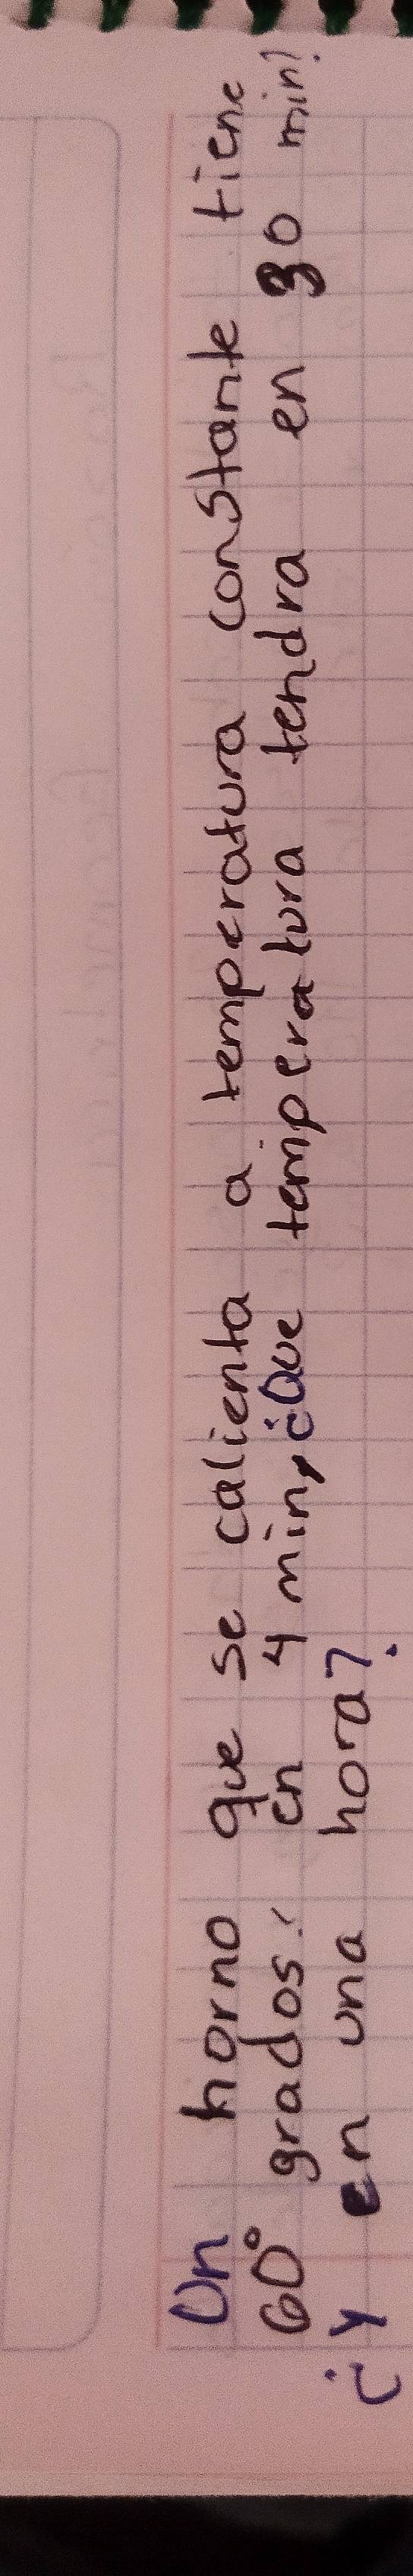 Un horno que se calienta a temperatura constante tiene
60° grados en 4 min, ¿Que temperatura tendra en 30 min?
¿Y en una hora?